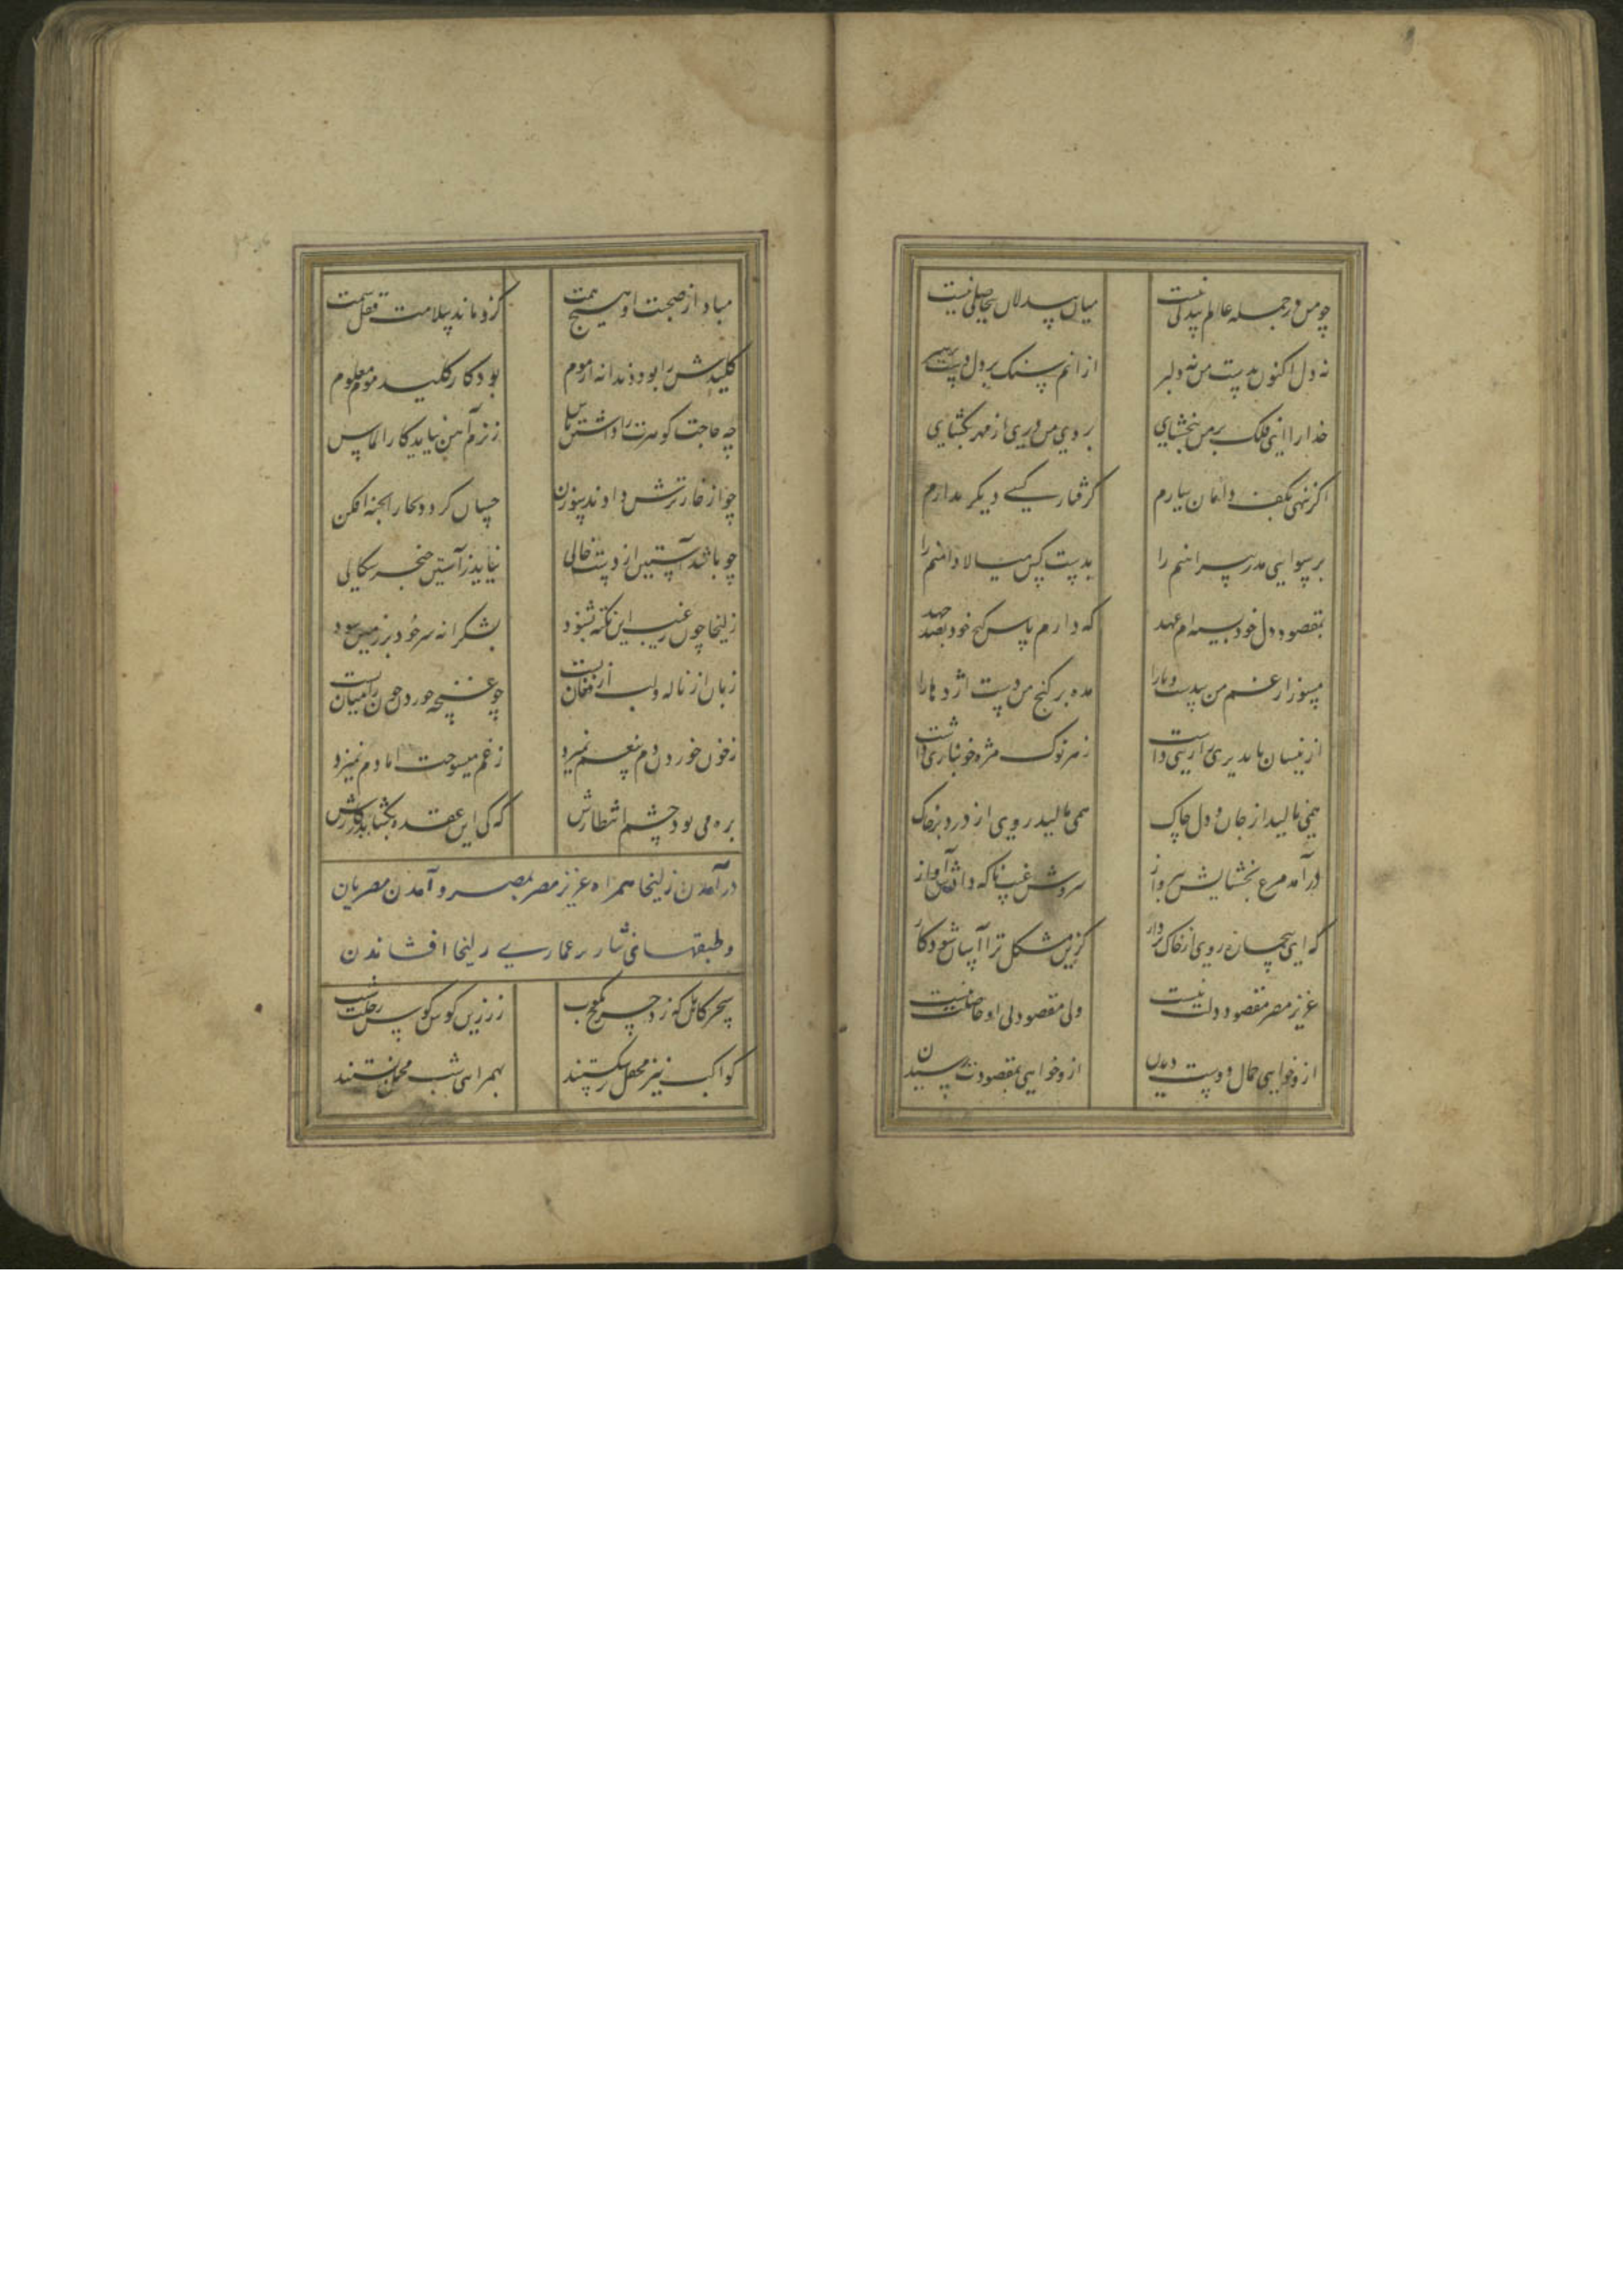 چو من در جمله عالم بیدلی نیست میان بیدلان بیحاصلی نیست
نه دل اکنون بدست من نه دلبر ازانم سنک بر دل دست بر سر
خدارا ای فلک بر من ببخشای بروی من دری از مهر بکشای
اکر ننهی بکف دامان یارم کرفتار کسی دیکر مدارم
برسوایی مدر پیراهنم را بدست کس میالا دامنم را
بمقصود دل خود بسته ام عهد که دارم پاس کنج خود بصد جهد
مسوز از غم من بیدست و پا را مده بر کنج من دست اژدها را
ازینسان تا بدیری زاریی داشت ز هر نوک مژه خونباری داشت
همی نالید از جان و دل چاک همی مالید روی از درد بر خاک
درآمد مرغ بخشایش بپرواز سروش غیب ناکه دادش آواز
که ای بیچاره روی از خاک بردار کزین مشکل ترا آسان شود کار
عزیز مصر مقصود دلت نیست ولی مقصود بی او حاصلت نیست
ازو خواهی جمال دوست دیدن ازو خواهی بمقصودت رسیدن
مباد از صحبت او هیچ بیمت کزو ماند سلامت قفل سیمت
کلیدش را بود دندانه از موم بود کار کلید موم معلوم
چه حاجت کوهرت را داشتن پاس ز نرم آهن نیاید کار الماس
چو از خار ترش دادند سوزن چسان کردد بخارا بخیه افکن
چو باشد آستین از دست خالی نیاید ز آستین خنجر سکالی
زلیخا چون ز غیب این نکته بشنود بشکرانه سر خود بر زمین سود
زبان از ناله و لب از فغان بست چو غنچه خوردن خون را میان بست
ز خون خوردن دم بیغم نمیزد ز غم میسوخت اما دم نمیزد
بره می بود چشم انتظارش که کی این عقده بکشاید ز کارش
درآمدن زلیخا همراه عزیز مصر بمصر و آمدن مصریان
و طبقهای نثار بر عماری زلیخا افشاندن
سحرکاهان که زد چرخ مکوکب ز زرین کوس کوس رحلت شب
کواکب نیز محفل برشکستند بهمراهی شب محمل ببستند